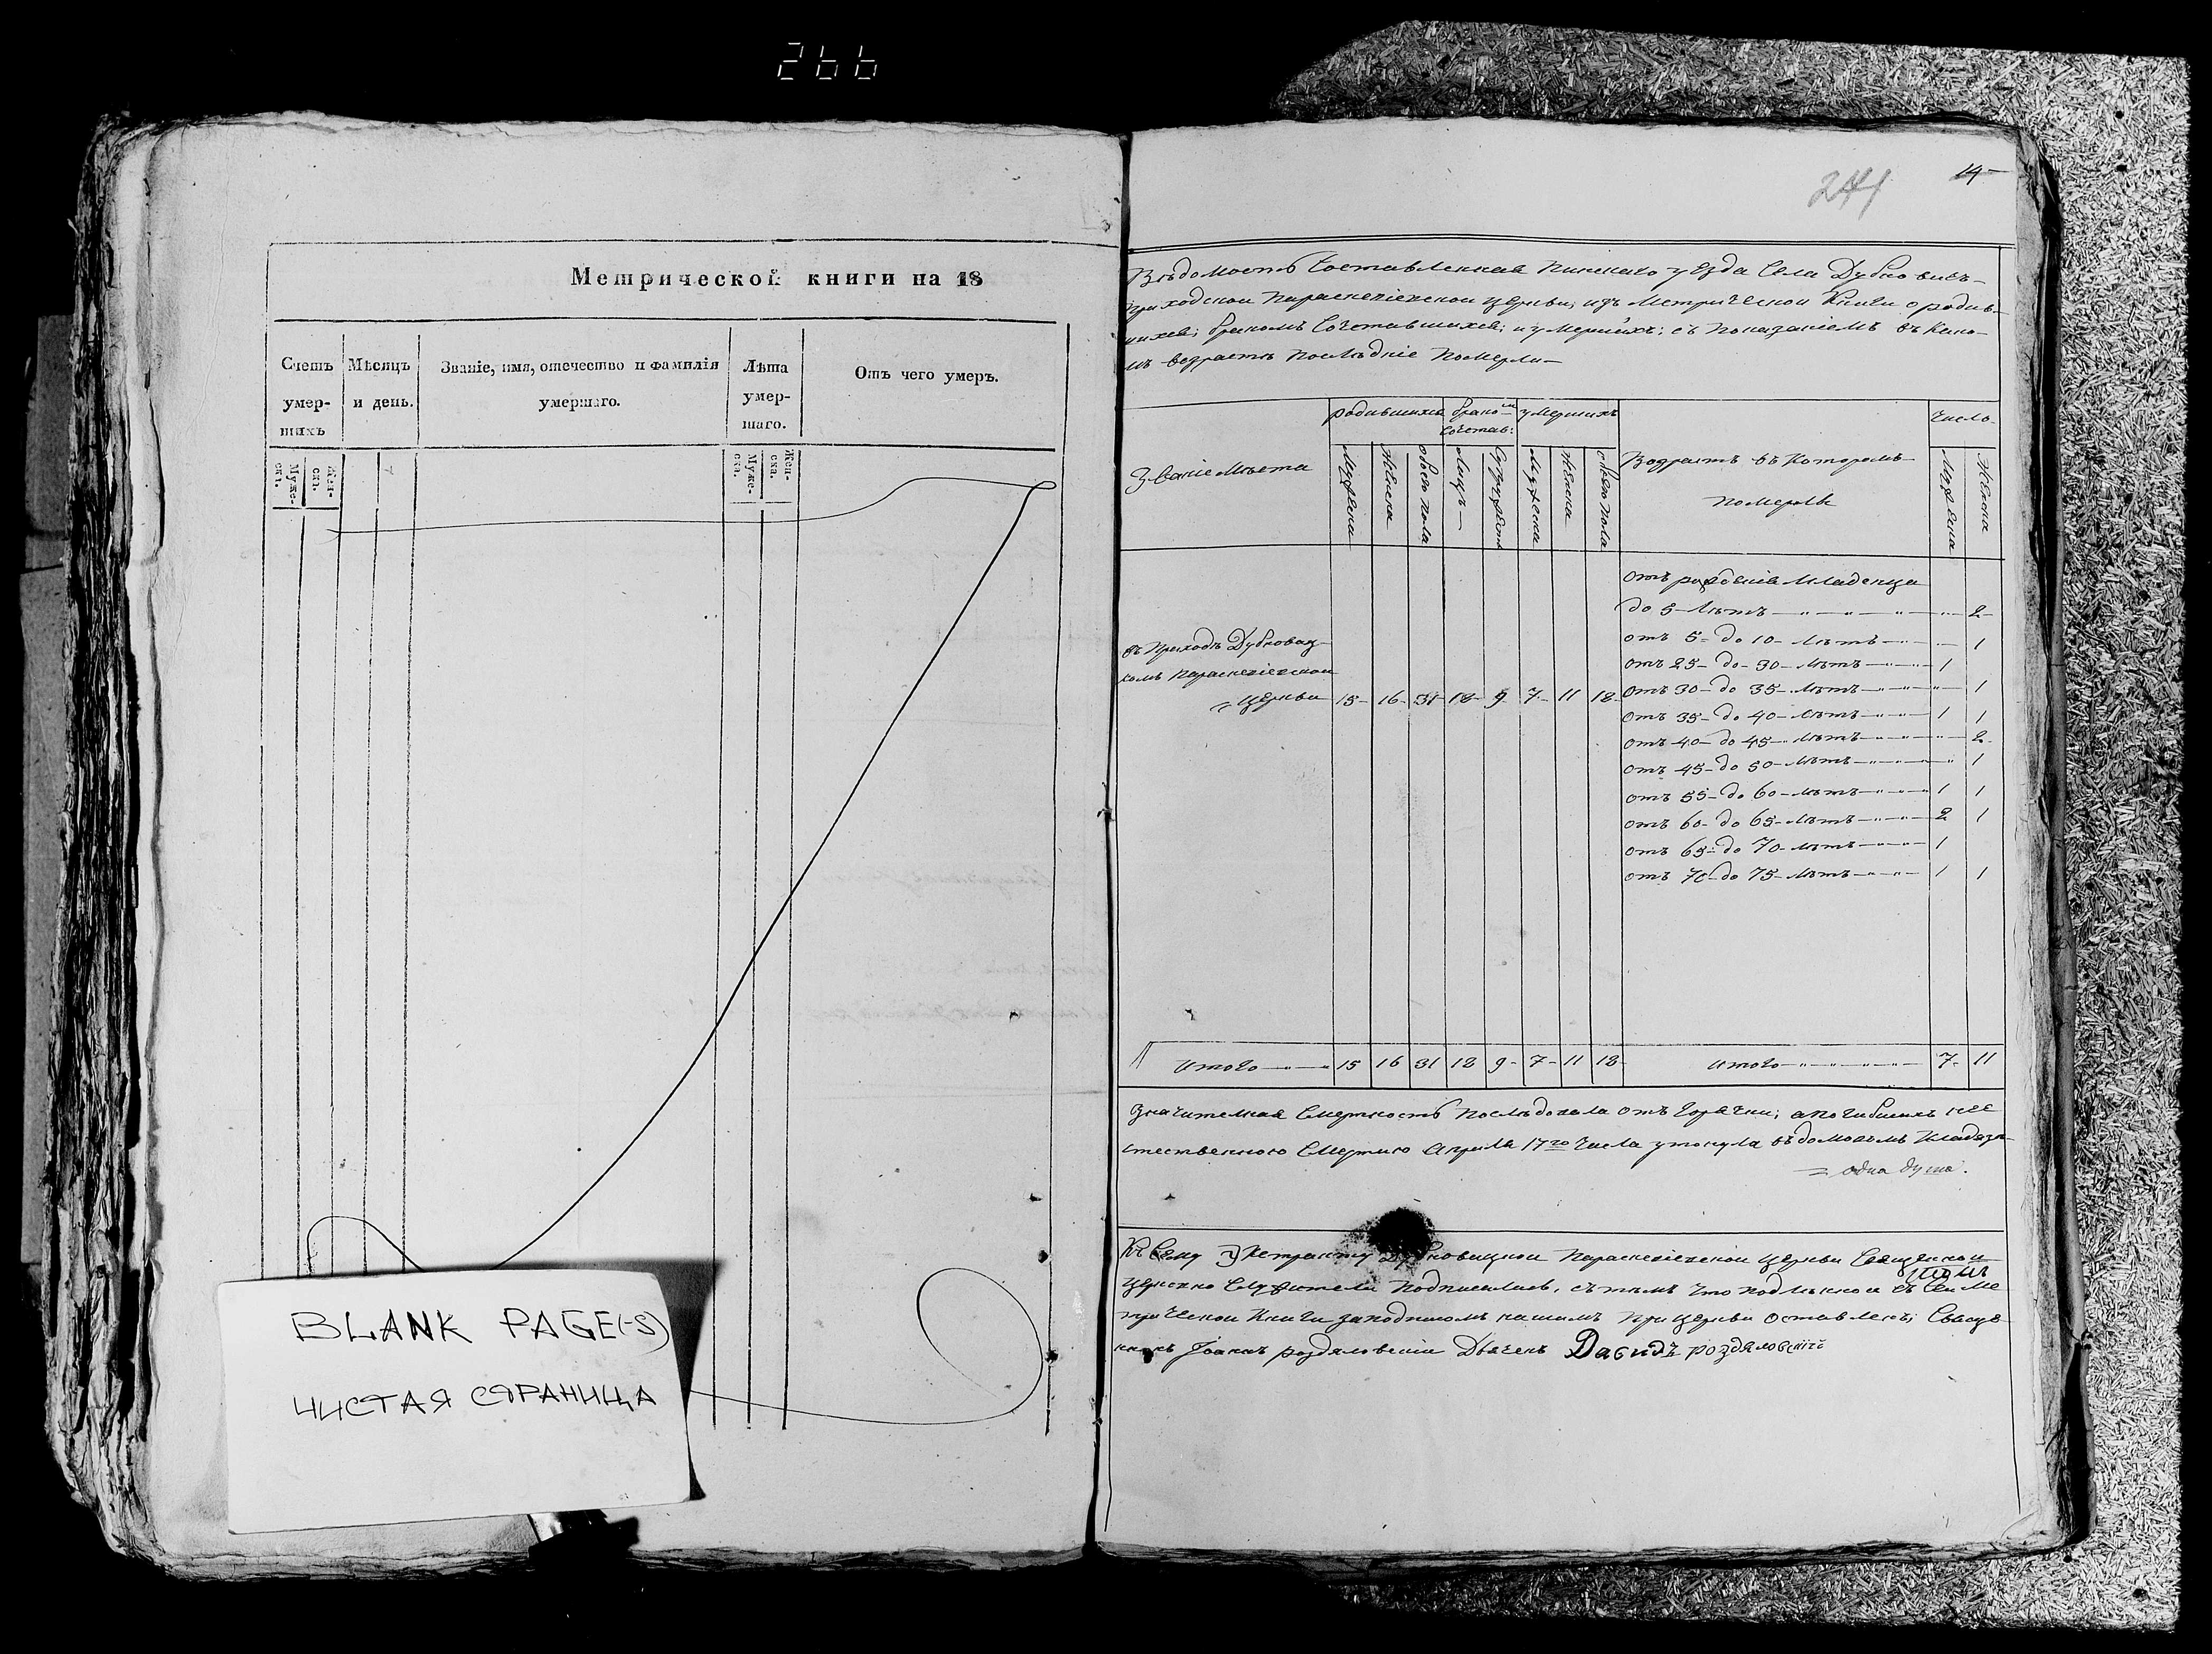 266
Метрической книги на 18
Счетъ умер- шихъ
Мѣсяцъ и день.
Званіе, имя, отечество и фамилія умершаго.
Лѣта умер- шаго.
Отъ чего умеръ.
Муже- ска.
Жен- ска.
Муже- ска.
Жен- ска.
BLANK PAGE(-S)
ЧИСТАЯ СТРАНИЦА
14
241
Вѣдомость Составленная Пинскаго уѣзда Села Дубно
приходской Параскевіевской Церкви, изъ Метрической Книги о родив-
шихся; бракомъ Сочетавшихся; и умершихъ; съ показаніемъ въ како-
мъ возрастѣ послѣдніе померли
Званіе Мѣста
родившихся
брако-
сочетав:
умершихъ
Возрастъ въ которомъ
померли
Число
Мужеска
Женска
обоего пола
Лицъ
Супружествъ
Мужеска
Женска
обоего пола
Мужеска
Женска
отъ рожденія младенца
до 5 лѣтъ 2
отъ 5 до 10 лѣтъ 1
отъ 25 до 30 лѣтъ 1
отъ 30 до 35 лѣтъ 1
отъ 35 до 40 лѣтъ 1 1
отъ 40 до 45 лѣтъ 2
отъ 45 до 50 лѣтъ 1
отъ 55 до 60 лѣтъ 1 1
отъ 60 до 65 лѣтъ 2 1
отъ 65 до 70 лѣтъ 1
отъ 70 до 75 лѣтъ 1 1
въ Приходѣ Дубновиц-
комъ Параскевіевской
Церкви 15 16 31 18 9 7 11 18
Итого 15 16 31 18 9 7 11 18 Итого 7 11
Значителная Смертность послѣдовала отъ горячки; а погибшихъ нее
стественною Смертию Апреля 17го числа утонула въ домовомъ кладязѣ
одна душа.
Къ Сему Экстракту Параскевіевской Церкви
Церковно Служители подписались, съ тѣмъ что подлинной съ сей ме
трической Книги за подписомъ нашимъ при церкви оставленъ; Свяще
нникъ Іоаннъ роздяловскій Дьячекъ Давидъ роздяловскій